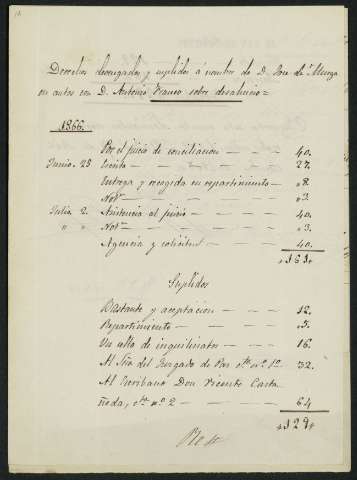 Derechos devengados y suplidos á nombre de D. Jose de Murga
en autos con D. Antonio Franco sobre desahucio =
1866.
Por el juicio de conciliacion — — 40.
Junio. 28 Escrito — — — — — 27.
Entrega y recogida en repartimiento — " 8.
Notn — — — — — " 3.
Julio 2. Asistencia al juicio — — — 40.
" " Notn — — — — — " 3.
Agencia y solicitud — — — — 40.
" 161 "
Suplidos
Bastante y aceptacion — — — 12.
Repartimiento — — — — " 5.
Un sello de inquilinatos — — — 16.
Al Srio del Juzgado de Paz cta nº 1º 32.
Al Escribano Don Vicente Casta
ñeda, cta nº 2 — — — — 64
" 129 "